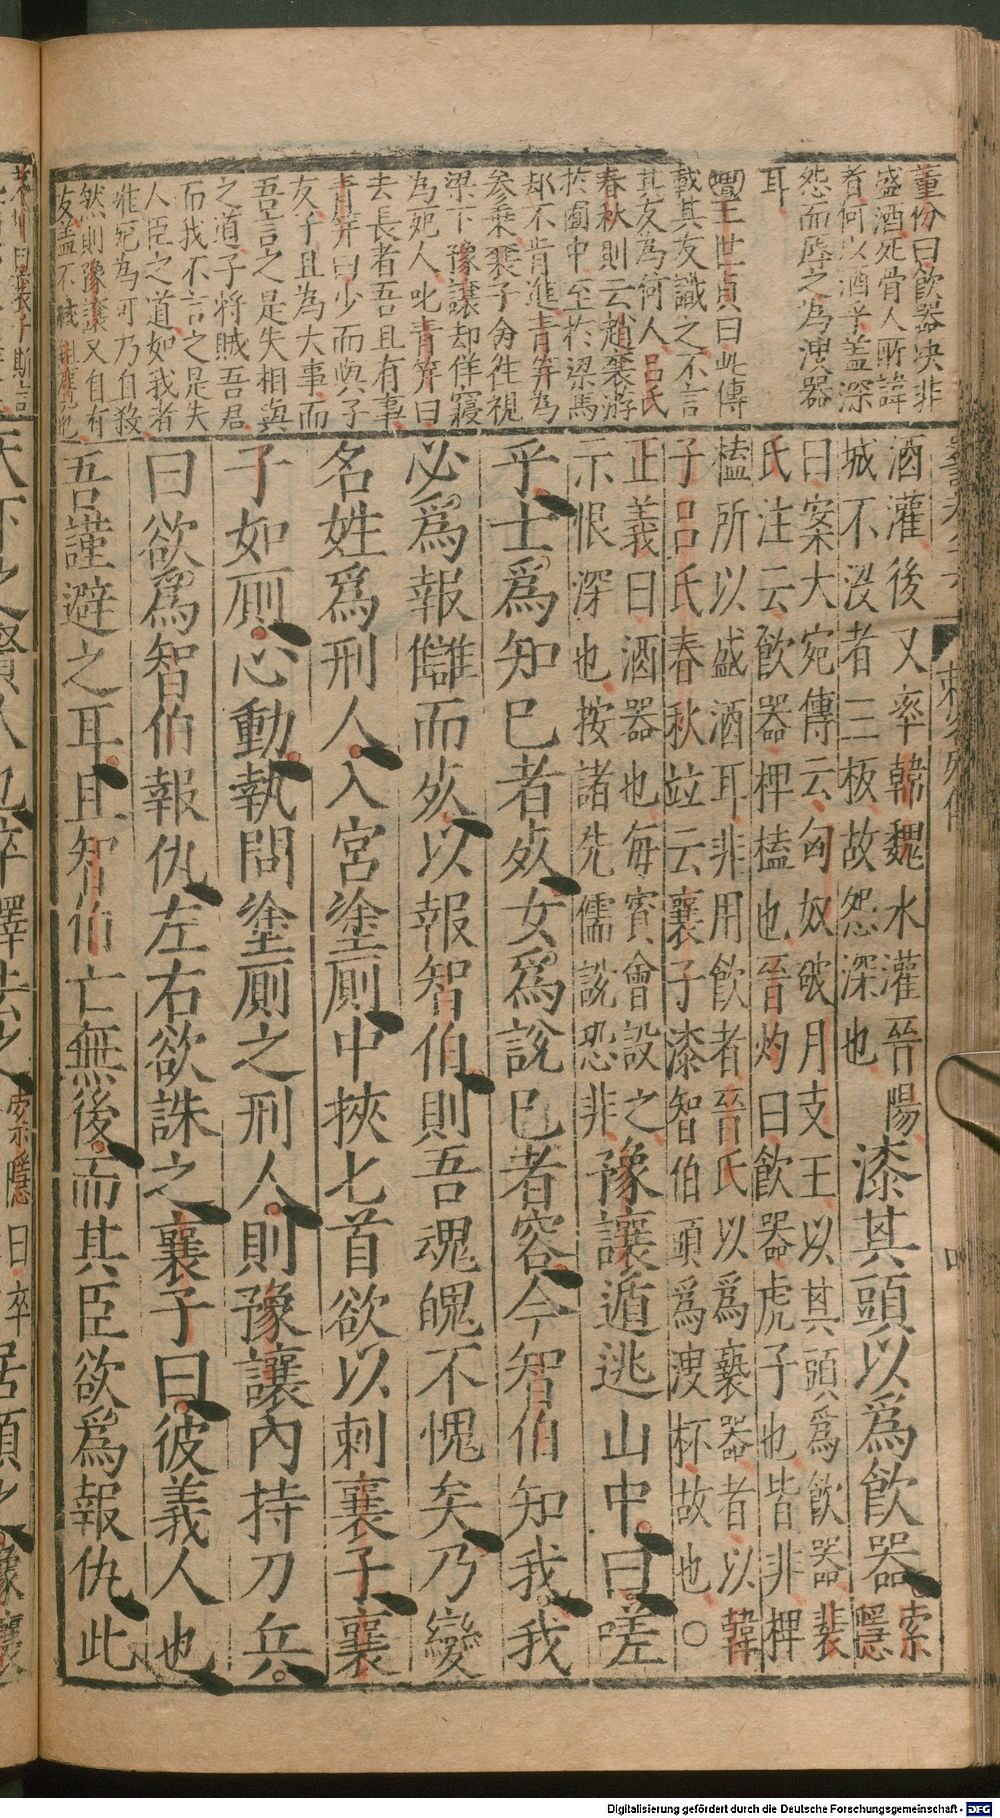 董份曰飲器決非
盛酒死骨人所諱
者何以酒乎盖深
怨而辱之為溲器
耳
王世貞曰此傳
載其友識之不言
其友為何人呂氏
春秋則云趙襄游
於囿中至於梁馬
却不肯進青荓為
参乗襄子曰徃視
梁下豫讓却佯寢
為死人叱青荓曰
去長者吾且有事
青荓曰少而與子
友子且為大事而
吾言之是失相與
之道子将賊吾君
而我不言之是失
人臣之道如我者
惟死為可乃自殺
然則豫讓又自有
友盖不
酒灌後又率韓魏水灌晉陽
城不沒者三板故怨深也
漆其頭以爲飲器
索
隱
曰案大宛傳云匈奴破月支王以其頭爲飲器裴
氏注云飲器椑榼也晉灼曰飲器虎子也皆非椑
榼所以盛酒耳非用飲者晉氏以爲褻器者以韓
子呂氏春秋竝云襄子漆智伯頭爲溲杯故也○
正義曰酒器也每賓會設之
示恨深也按諸先儒說恐非
豫讓遁逃山中曰嗟
乎士爲知已者死女爲說已者容今智伯知我我
必爲報讎而死以報智伯則吾魂魄不愧矣乃變
名姓爲刑人入宮塗厠中挾匕首欲以刺襄子襄
子如厠心動執問塗厠之刑人則豫讓內持刀兵
曰欲爲智伯報仇左右欲誅之襄子曰彼義人也
吾謹避之耳且智伯亡無後而其臣欲爲報仇此
天下之賢人也卒釋去之
索隱曰卒
居頃之豫讓
Digitalisierung gefördert durch die Deutsche Forschungsgemeinschaft - DFG